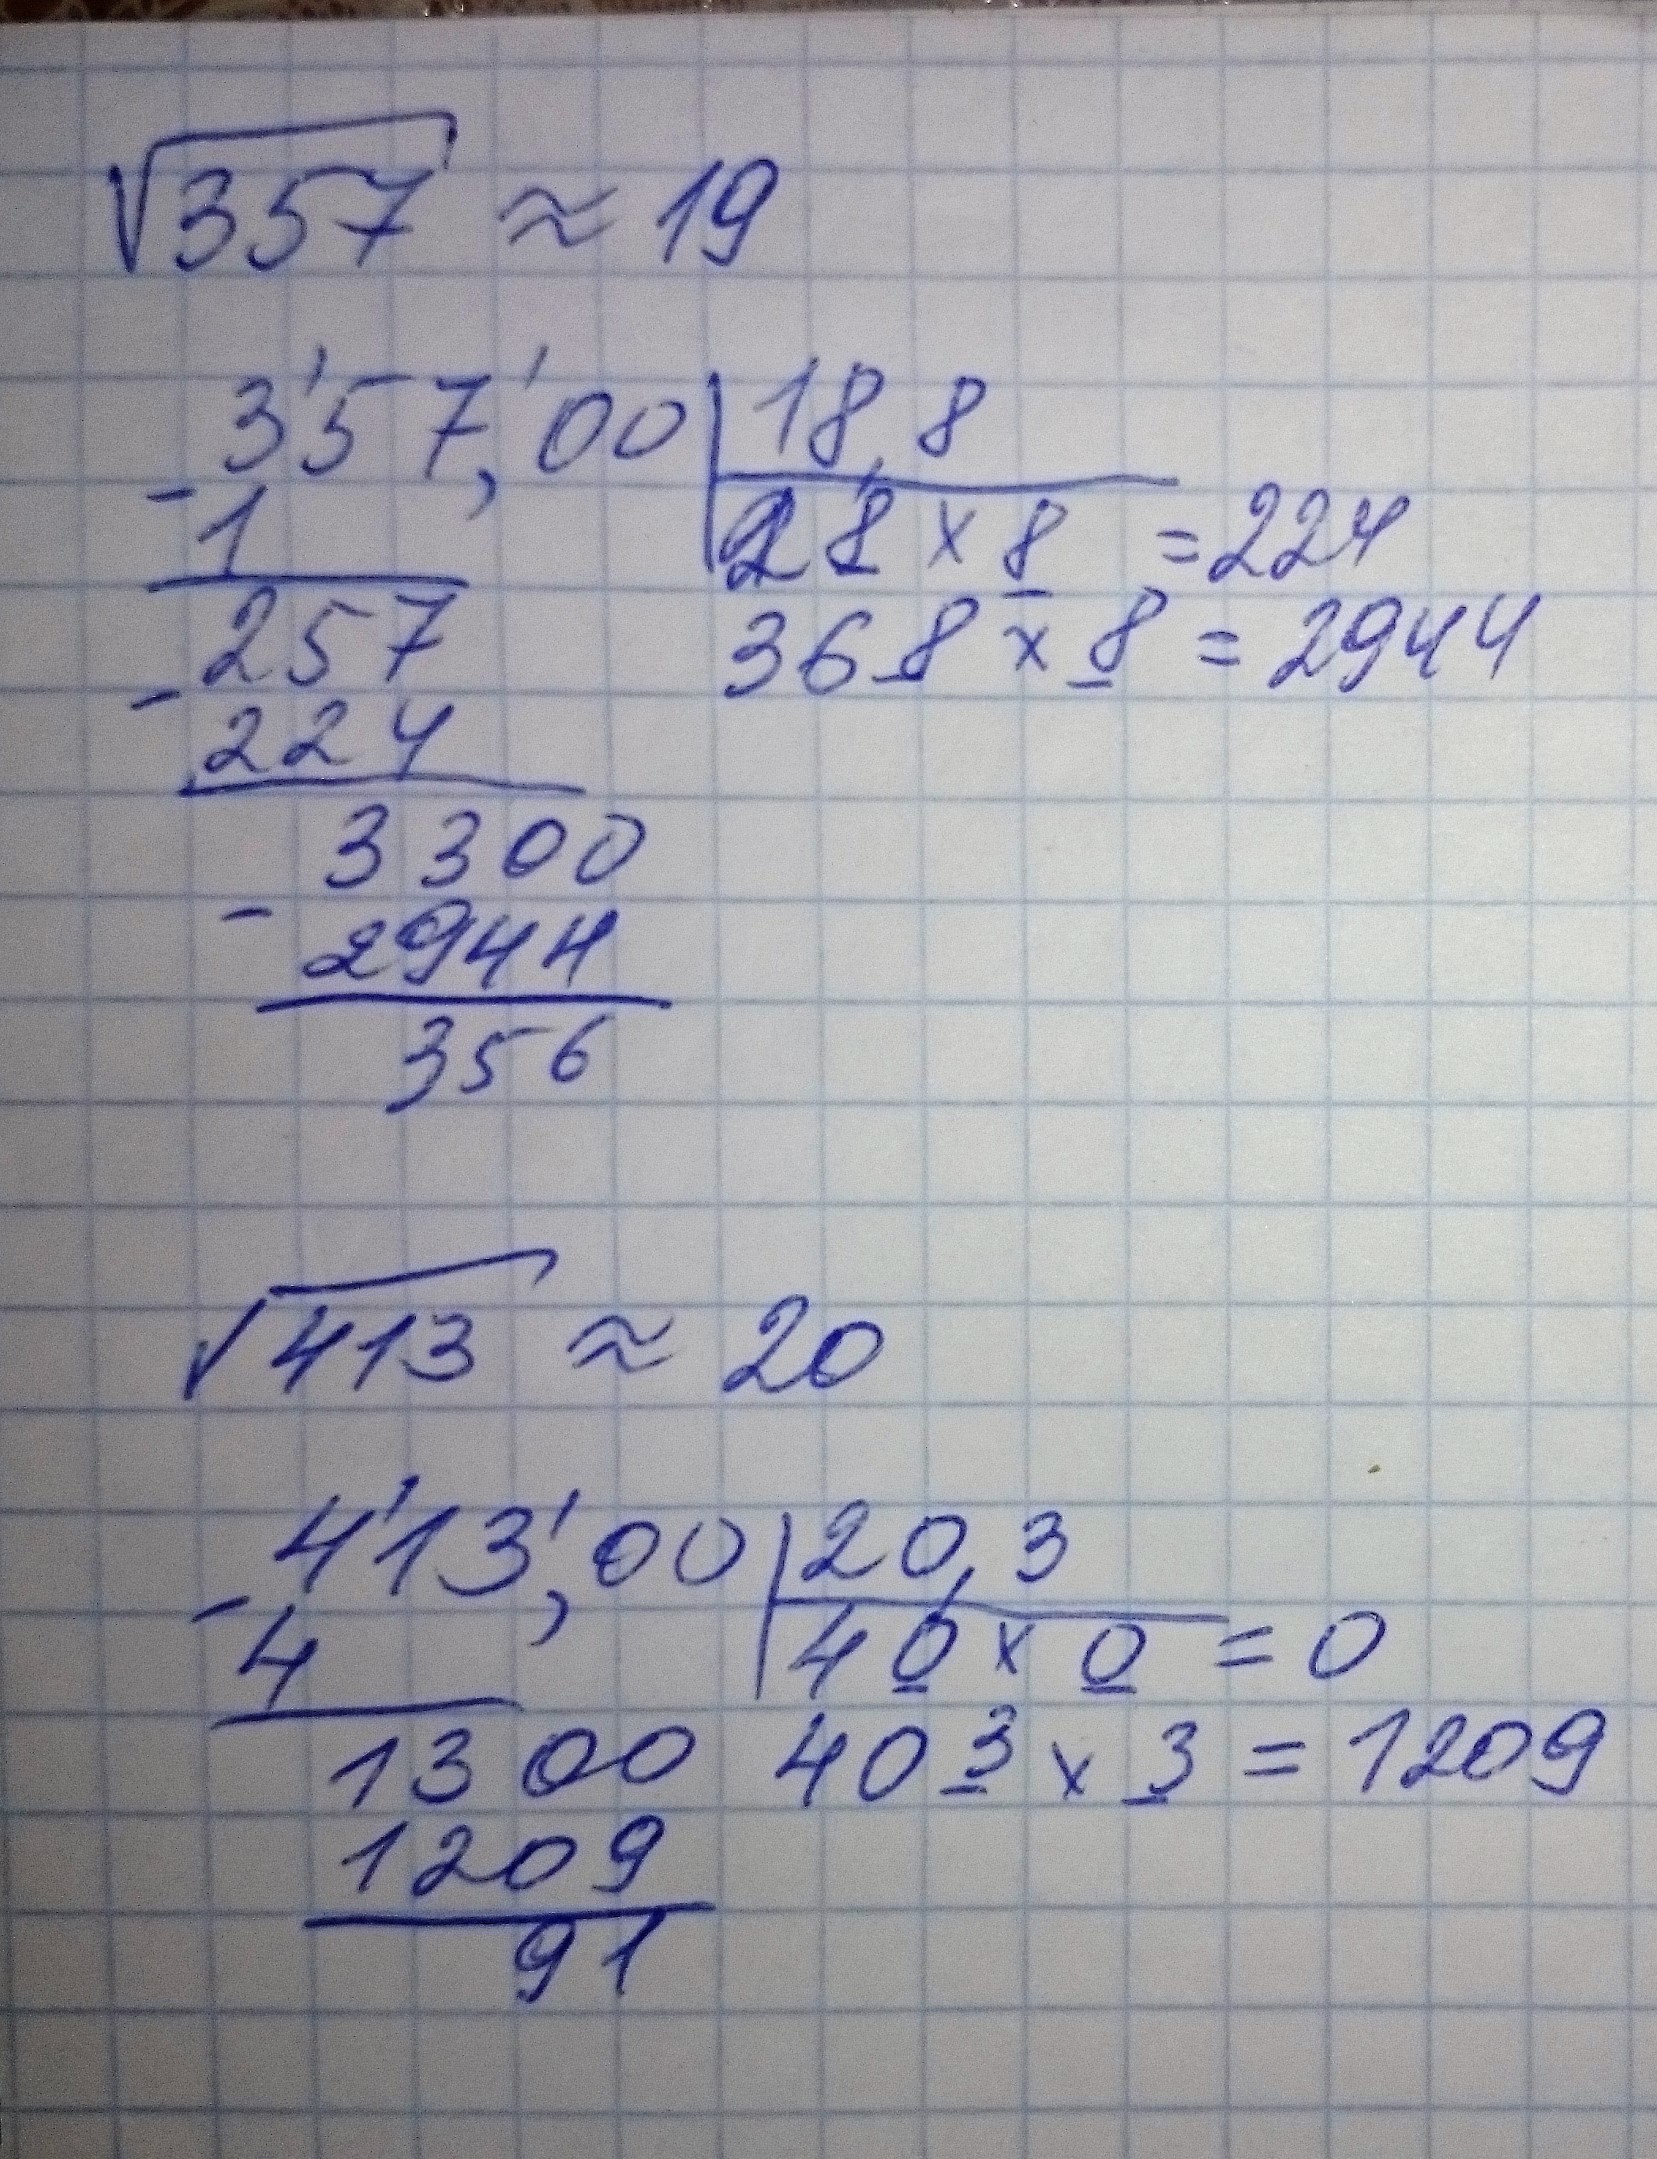 √357 ≈ 19
3'57,'00 | 18,8
- 1
28 × 8 = 224
257
368 × 8 = 2944
- 224
3300
- 2944
356
√413 ≈ 20
4'13,'00 | 20,3
- 4
40 × 0 = 0
1300
403 × 3 = 1209
1209
91